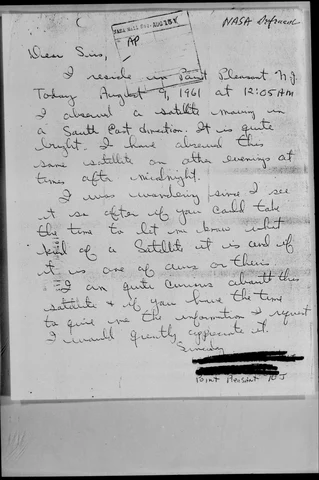 NASA
NASA Mail Sec. AUG 15
AP
Dear Sirs,
I reside in Point Pleasant N.J.
Today August 9, 1961 at 12:05 AM
I observed a satellite moving in
a South East direction. It is quite
bright. I have observed this
same satellite on other evenings at
times after midnight.
I was wondering since I see
it so often if you could take
the time to let me know what
kind of a Satellite it is and if
it is one of ours or theirs.
I am quite curious about this
satellite & if you have the time
to give me the information I request
I would greatly appreciate it.
Sincerely
Point Pleasant N J